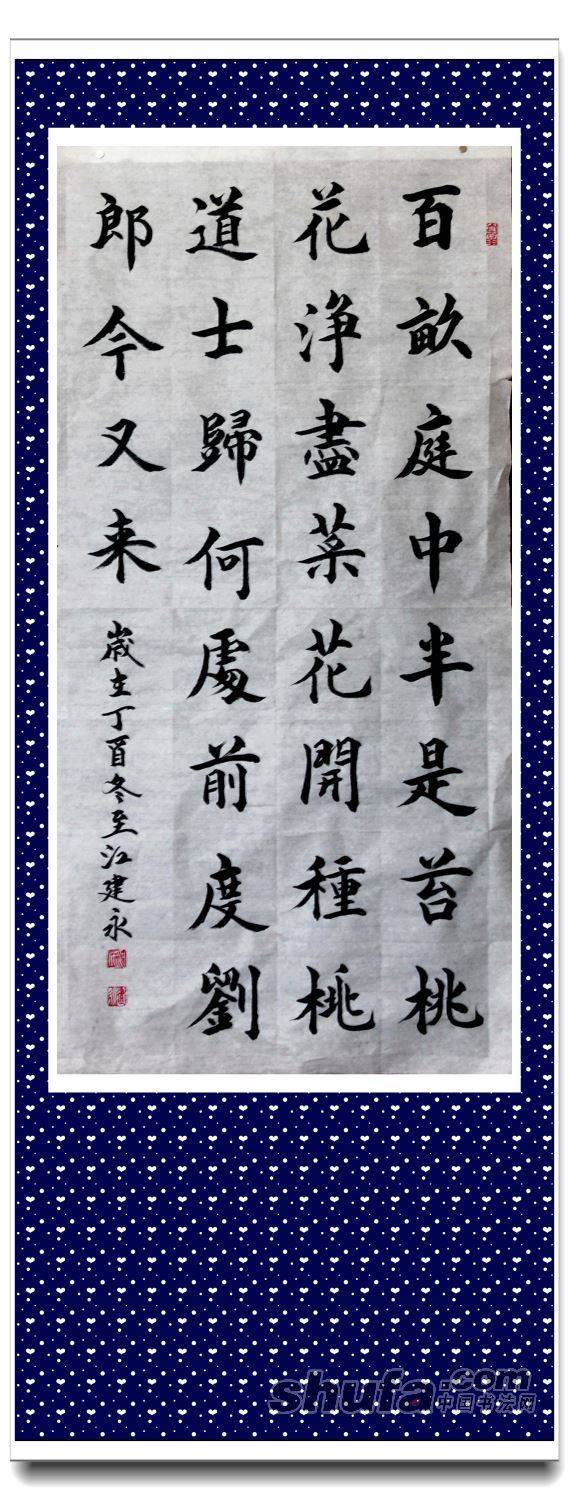 百畝庭中半是苔桃
花浄盡菜花開種桃
道士歸何處前度劉
郎今又来
歲在丁酉冬至江建永
shufa.com
中国书法网